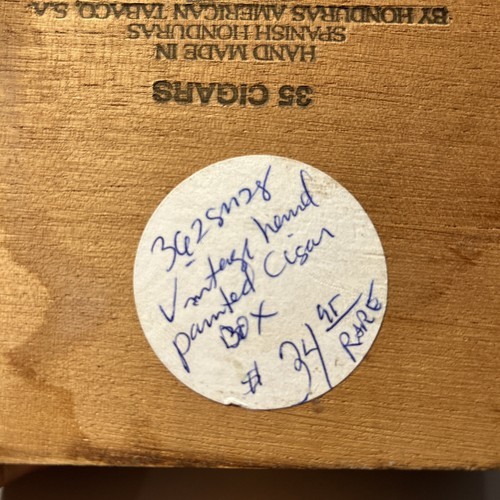 35 CIGARS
HAND MADE IN
SPANISH HONDURAS
BY HONDURAS AMERICAN TABACO, S.A
Vintage hand
painted Cigar
BOX
$ 34 95
RARE